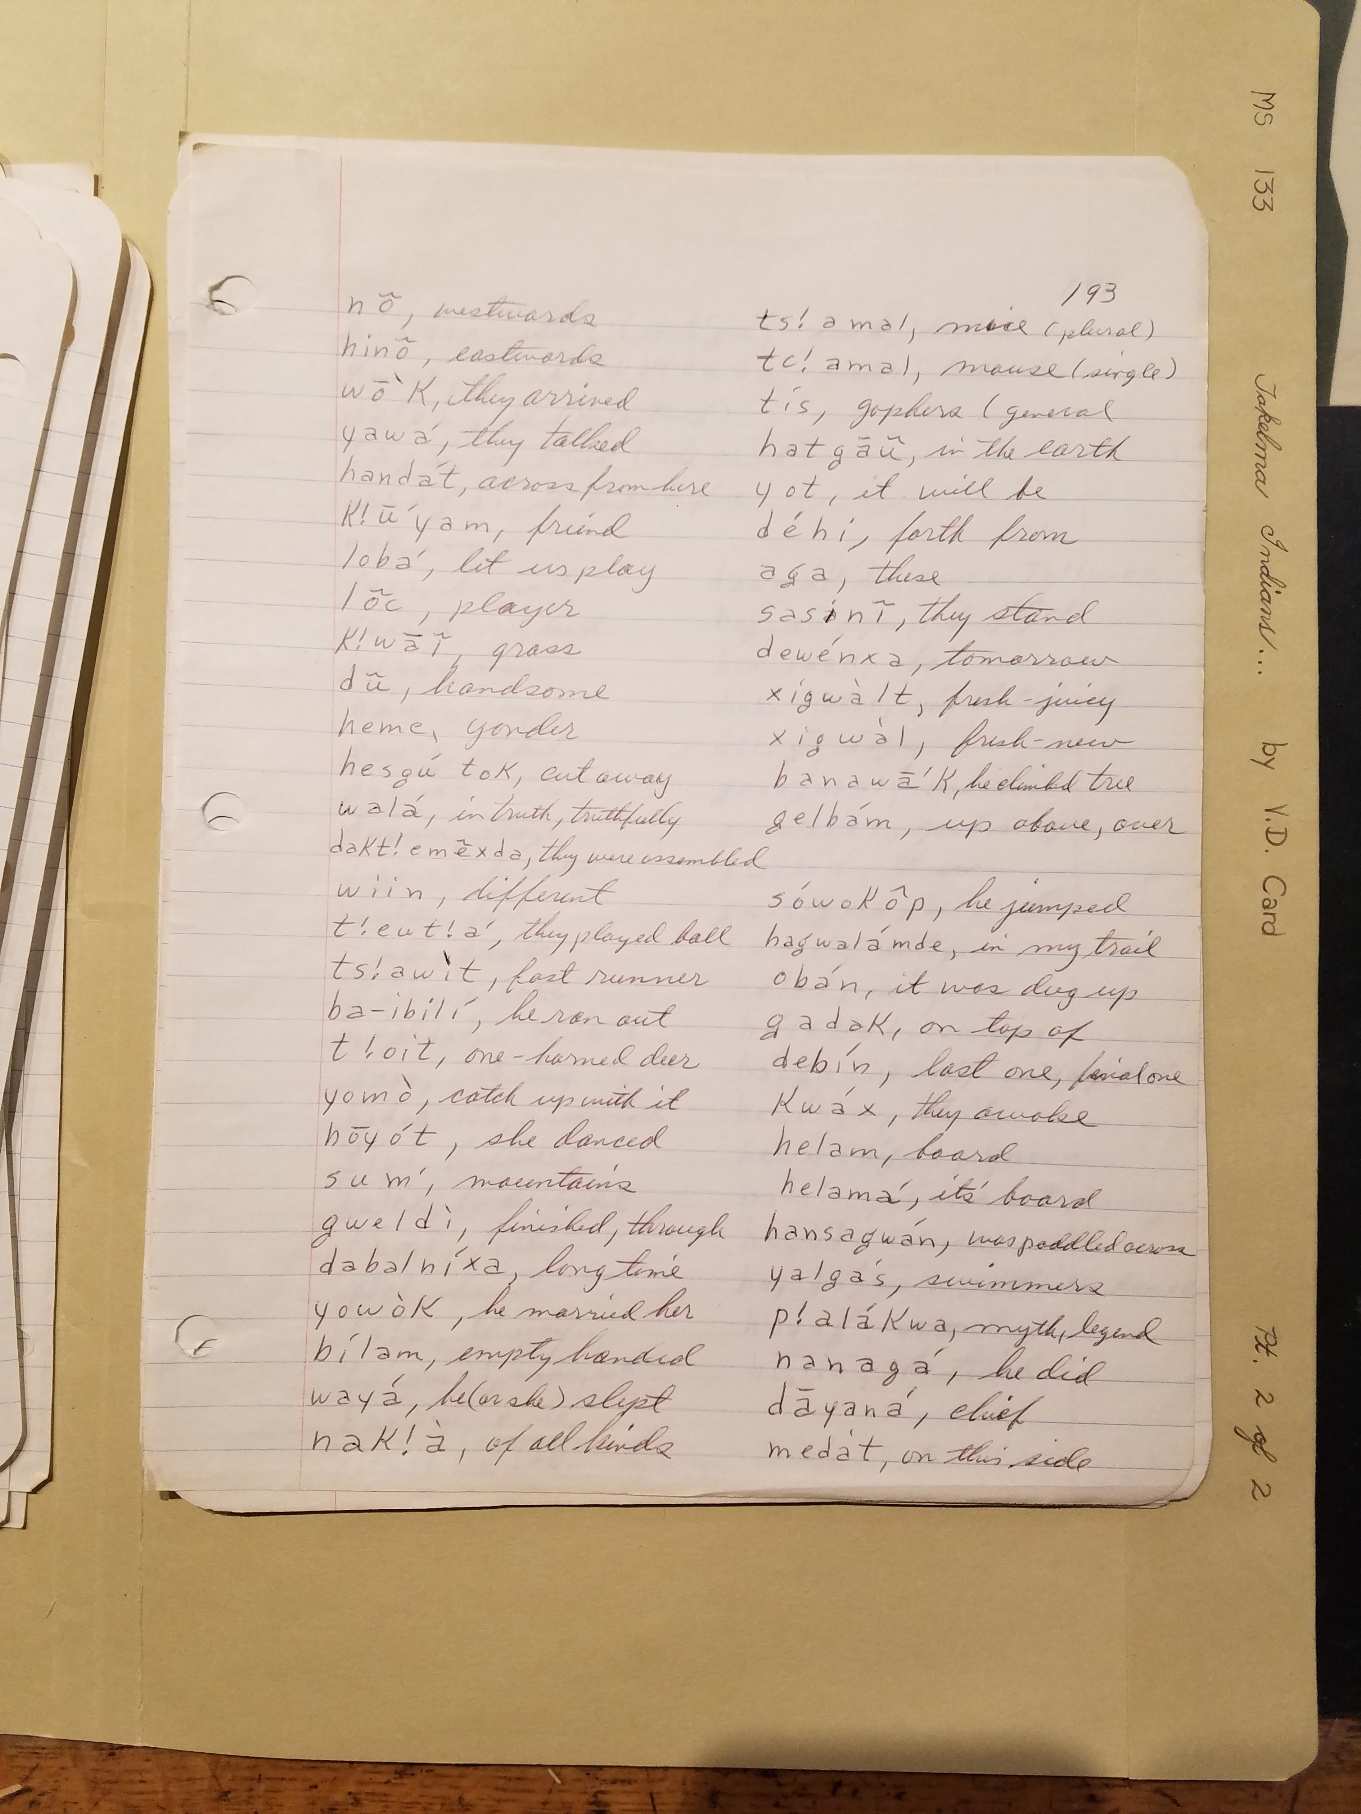 193
nõ, westwards
hinõ, eastwards
wṑk, they arrived
yawá, they talked
handát, across from here
K!ū́yam, friend
lobá, let us play
lõc, player
K!wāĩ, grass
dũ, handsome
heme, yonder
hesgú tok, cut away
walá, in truth, truthfully
dakt!emẽxda, they were assembled
wiin, different
t!eut!á, they played ball
ts!awìt, fast runner
ba-ibilí, he ran out
t!oit, one-horned deer
yomò, catch up with it
hōyót, she danced
sum', mountains
gweldì, finished, through
dabalníxa, long time
yowòk, he married her
bílam, empty handed
wayá, he (or she) slept
nak!à, of all kinds
ts!amal, mice (plural)
tc!amal, mouse (single)
tís, gophers (general
hatgāũ, in the earth
yot, it will be
déhí, forth from
aga, these
sasinĩ, they stand
dewénxa, tomorrow
xígwàlt, fresh-juicy
xigwàl, fresh-new
banawā́k, he climbd tree
gelbám, up above, over
sówokôp, he jumped
hagwalámde, in my trail
obán, it was dug up
gadak, on top of
debín, last one, final one
kwáx, they awoke
helam, board
helamá, its' board
hansagwán, was paddled across
yalgás, swimmers
p!alákwa, myth, legend
nanagá, he did
dāyaná, chief
medát, on this side
MS 133 Takelma Indians... by V.D. Card Pt. 2 of 2